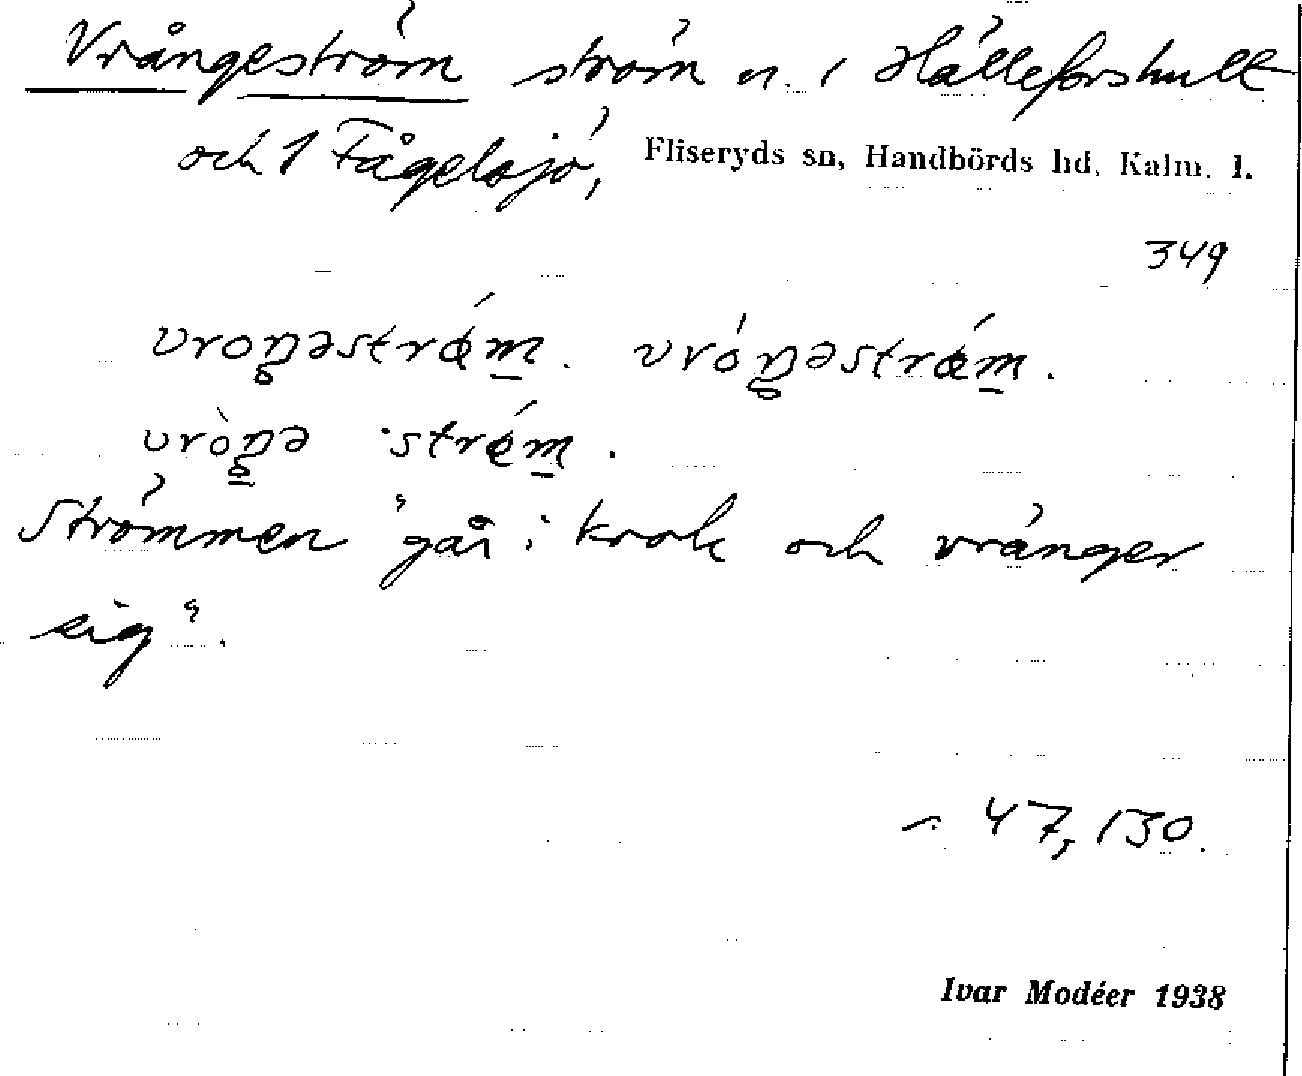 Vrångeström ström n. i Hälleforshult
och i Fågelsjö, Fliseryds sn, Handbörds hd, Kalm. l.
349
vroŋəstrǿm. vróŋəstrǿm.
vròŋə strǿm.
Strömmen "går i krok och vränger
sig".
47,130.
Ivar Modéer 1938